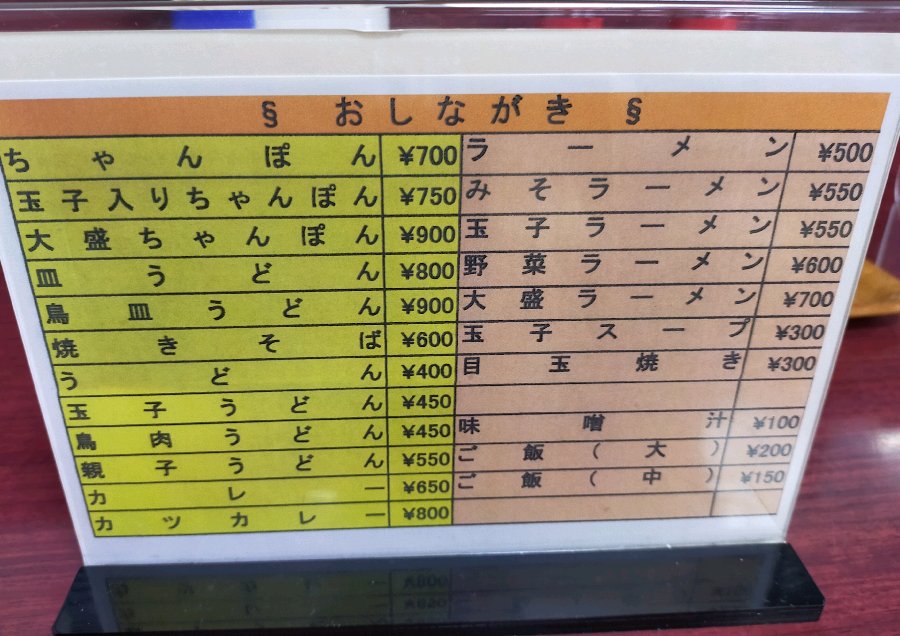 § おしながき §
ちゃんぽん ¥700
玉子入りちゃんぽん ¥750
大盛ちゃんぽん ¥900
皿うどん ¥800
鳥皿うどん ¥900
焼きそば ¥600
うどん ¥400
玉子うどん ¥450
鳥肉うどん ¥450
親子うどん ¥550
カレー ¥650
カツカレー ¥800
ラーメン ¥500
みそラーメン ¥550
玉子ラーメン ¥550
野菜ラーメン ¥600
大盛ラーメン ¥700
玉子スープ ¥300
目玉焼き ¥300
味噌汁 ¥100
ご飯(大) ¥200
ご飯(中) ¥150